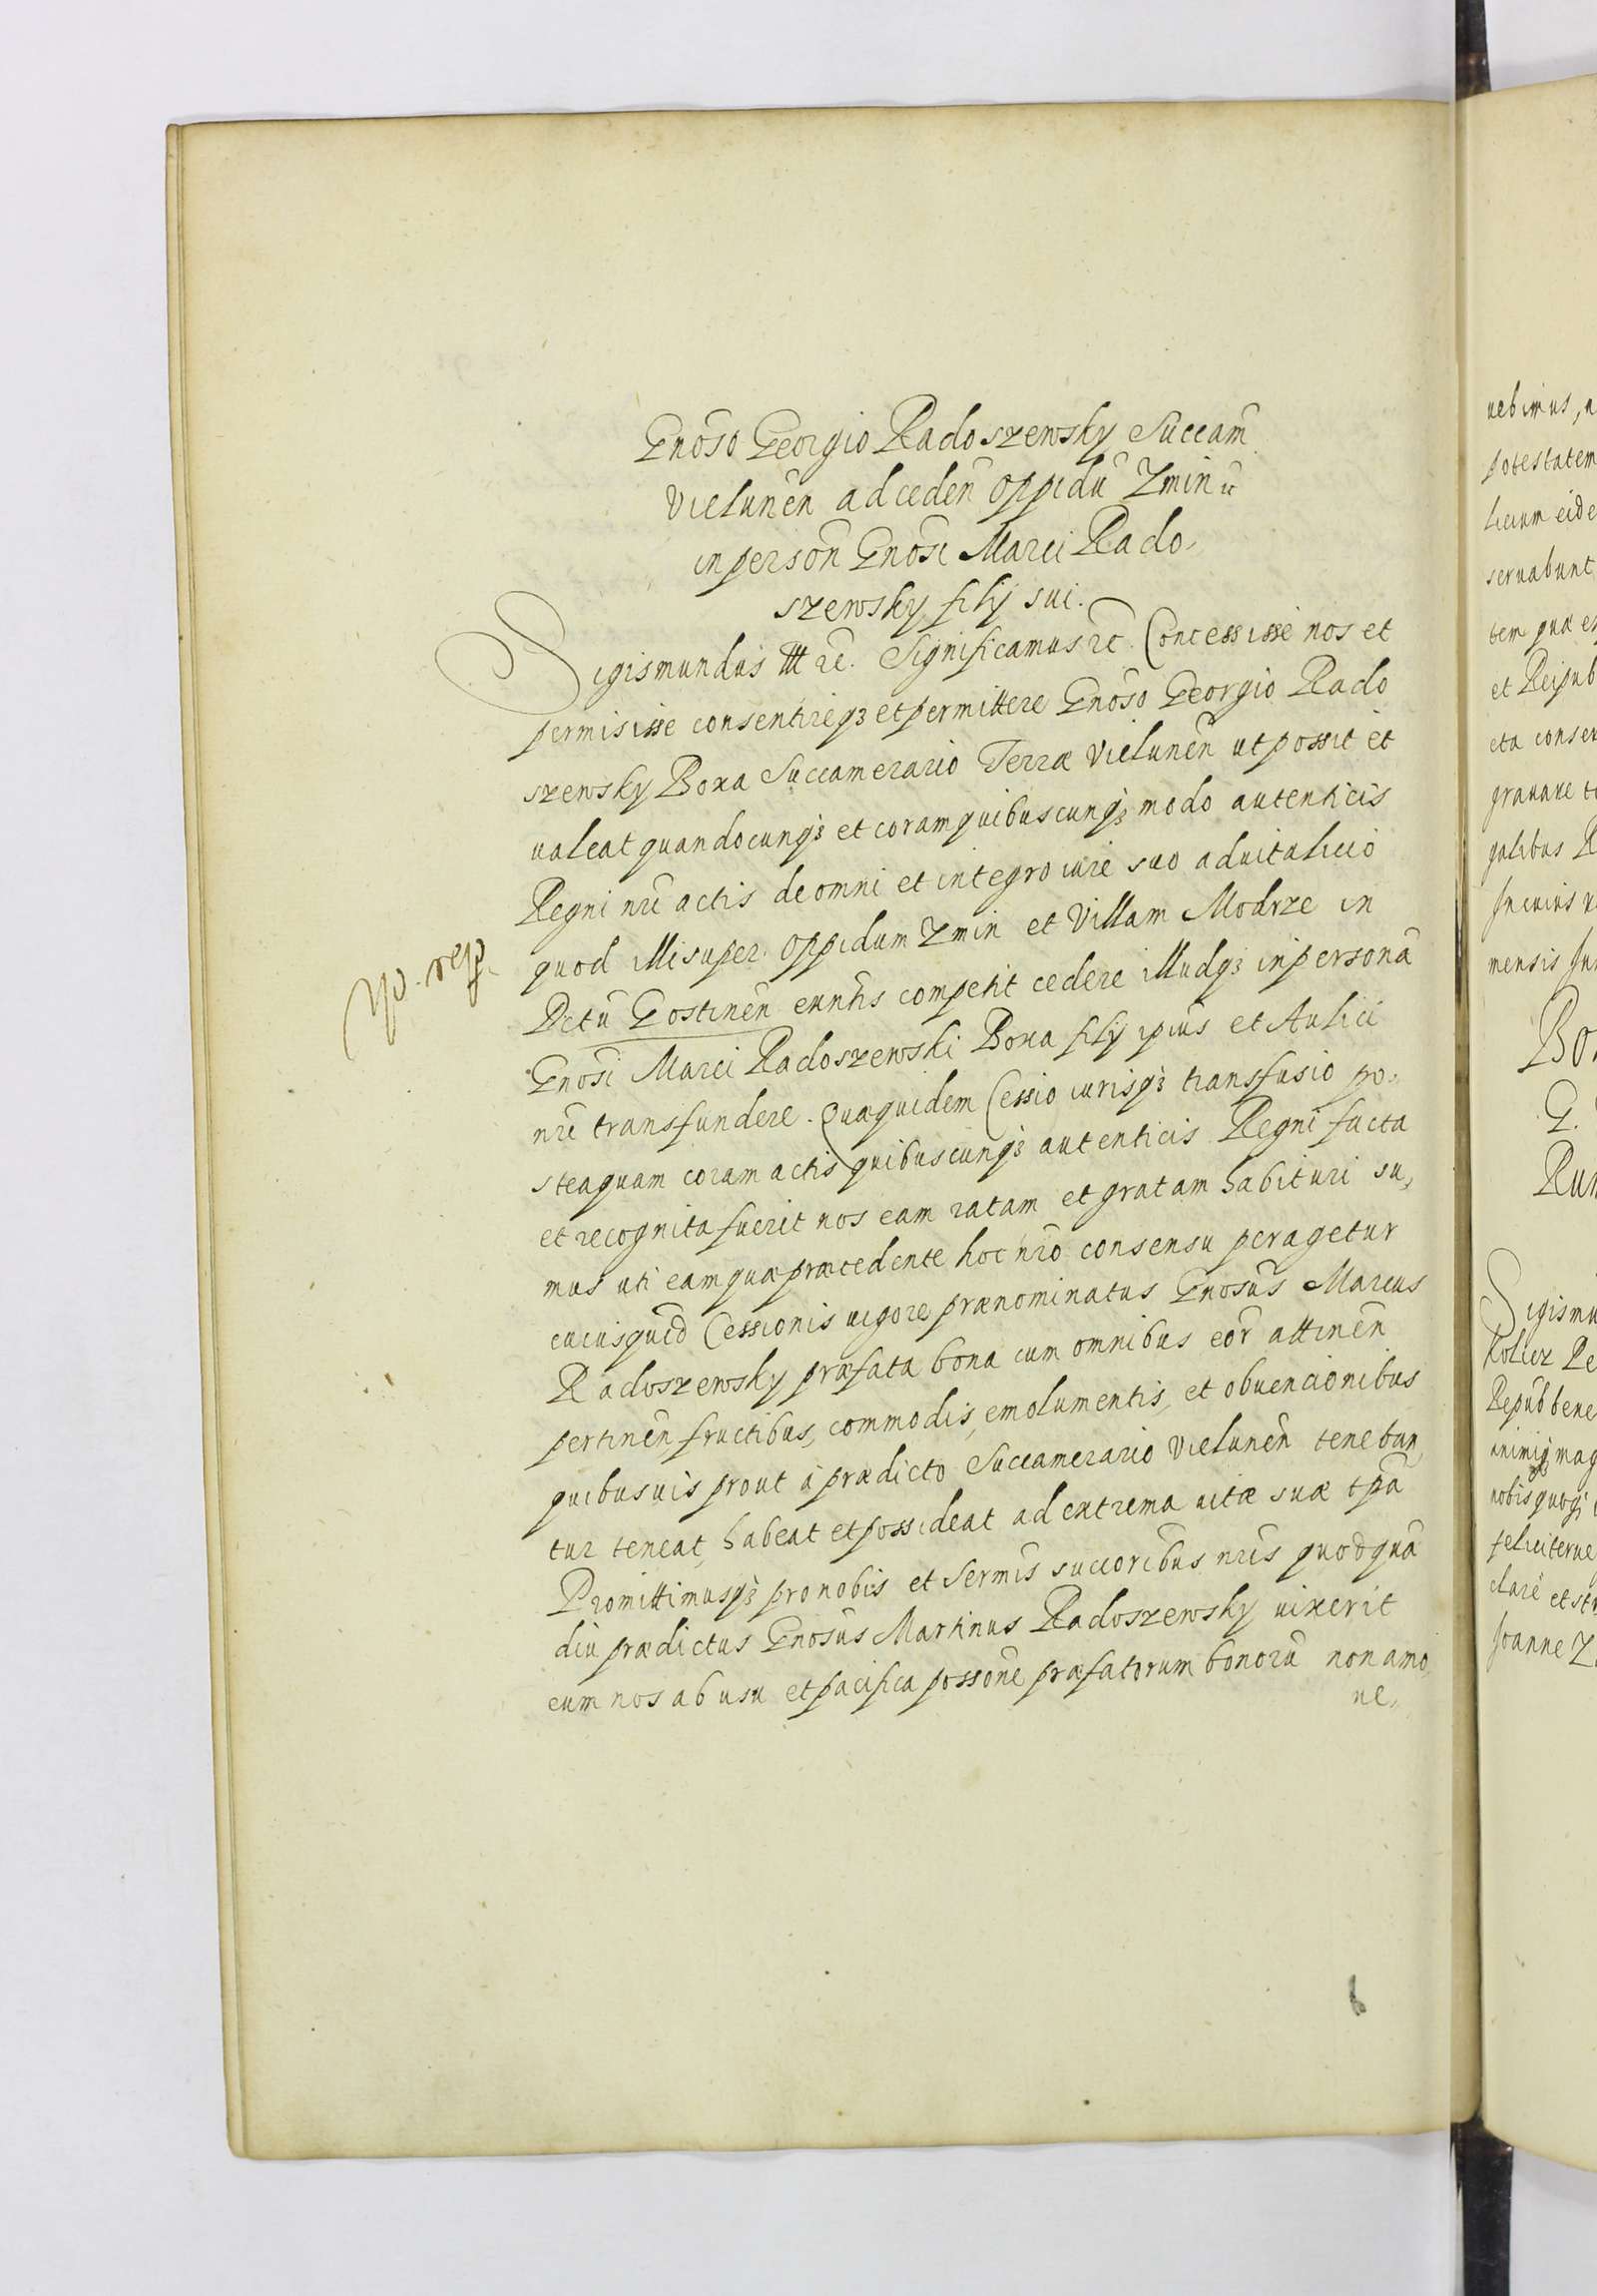 Gnoso Georgio Radoszewsky Succam
Vielunen ad ceden oppidu Zmin et
in person Gnosi Marci Rado-
szewsky filij sui.
Sigismundus III etc. Significamus etc. Concessisse nos et
permisisse consentireqȝ et permittere Gnoso Georgio Rado
szewsky Boxa Succamerario Terræ Vielunen ut possit et
ualeat quandocunqȝ et coram quibuscunqȝ modo autenticis
Regni nri actis de omni et integro iure suo aduitalicio
quod illi super oppidum Zmin et Villam Modrze in
Dctu Gostinen exnntis competit cedere illudqȝ in persona
Gnosi Marci Radoszewski Boxa filij ipius et Aulici
nri transfundere. Quæquidem Cessio iurisqȝ transfusio po-
steaquam coram actis quibuscunqȝ autenticis Regni facta
et recognita fuerit nos eam ratam et gratam habituri su,
mus uti eam quæ præcedente hoc nro consensu peragetur
cuiusquid Cessionis uigore prænominatus Gnosus Marcus
Radoszewsky præfata bona cum omnibus eor attinen
pertinen fructibus, commodis, emolumentis, et obuencionibus
quibusuis prout à prædicto Succamerario Vielunen teneban,
tur teneat, habeat et possideat ad extrema uitæ suæ tpa
Promittimusqȝ pro nobis et Sermis succoribus nris quod qua
diu prædictus Gnosus Martinus Radoszewsky uixerit
eum nos ab usu et pacifica possone præfatorum bonoru non amo,
ue,
6
uebimus, n
potestatem
licium eide
seruabunt
tem quæ ex
et Reipub
cta conser
grauare
galibus R
In cuius
mensis Iun
Bo
G.
Run
Sigismu
Kolicz
Repub bene
animiqȝ mag
nobis quoqȝ
feliciterue
clare et str
Joanne Z